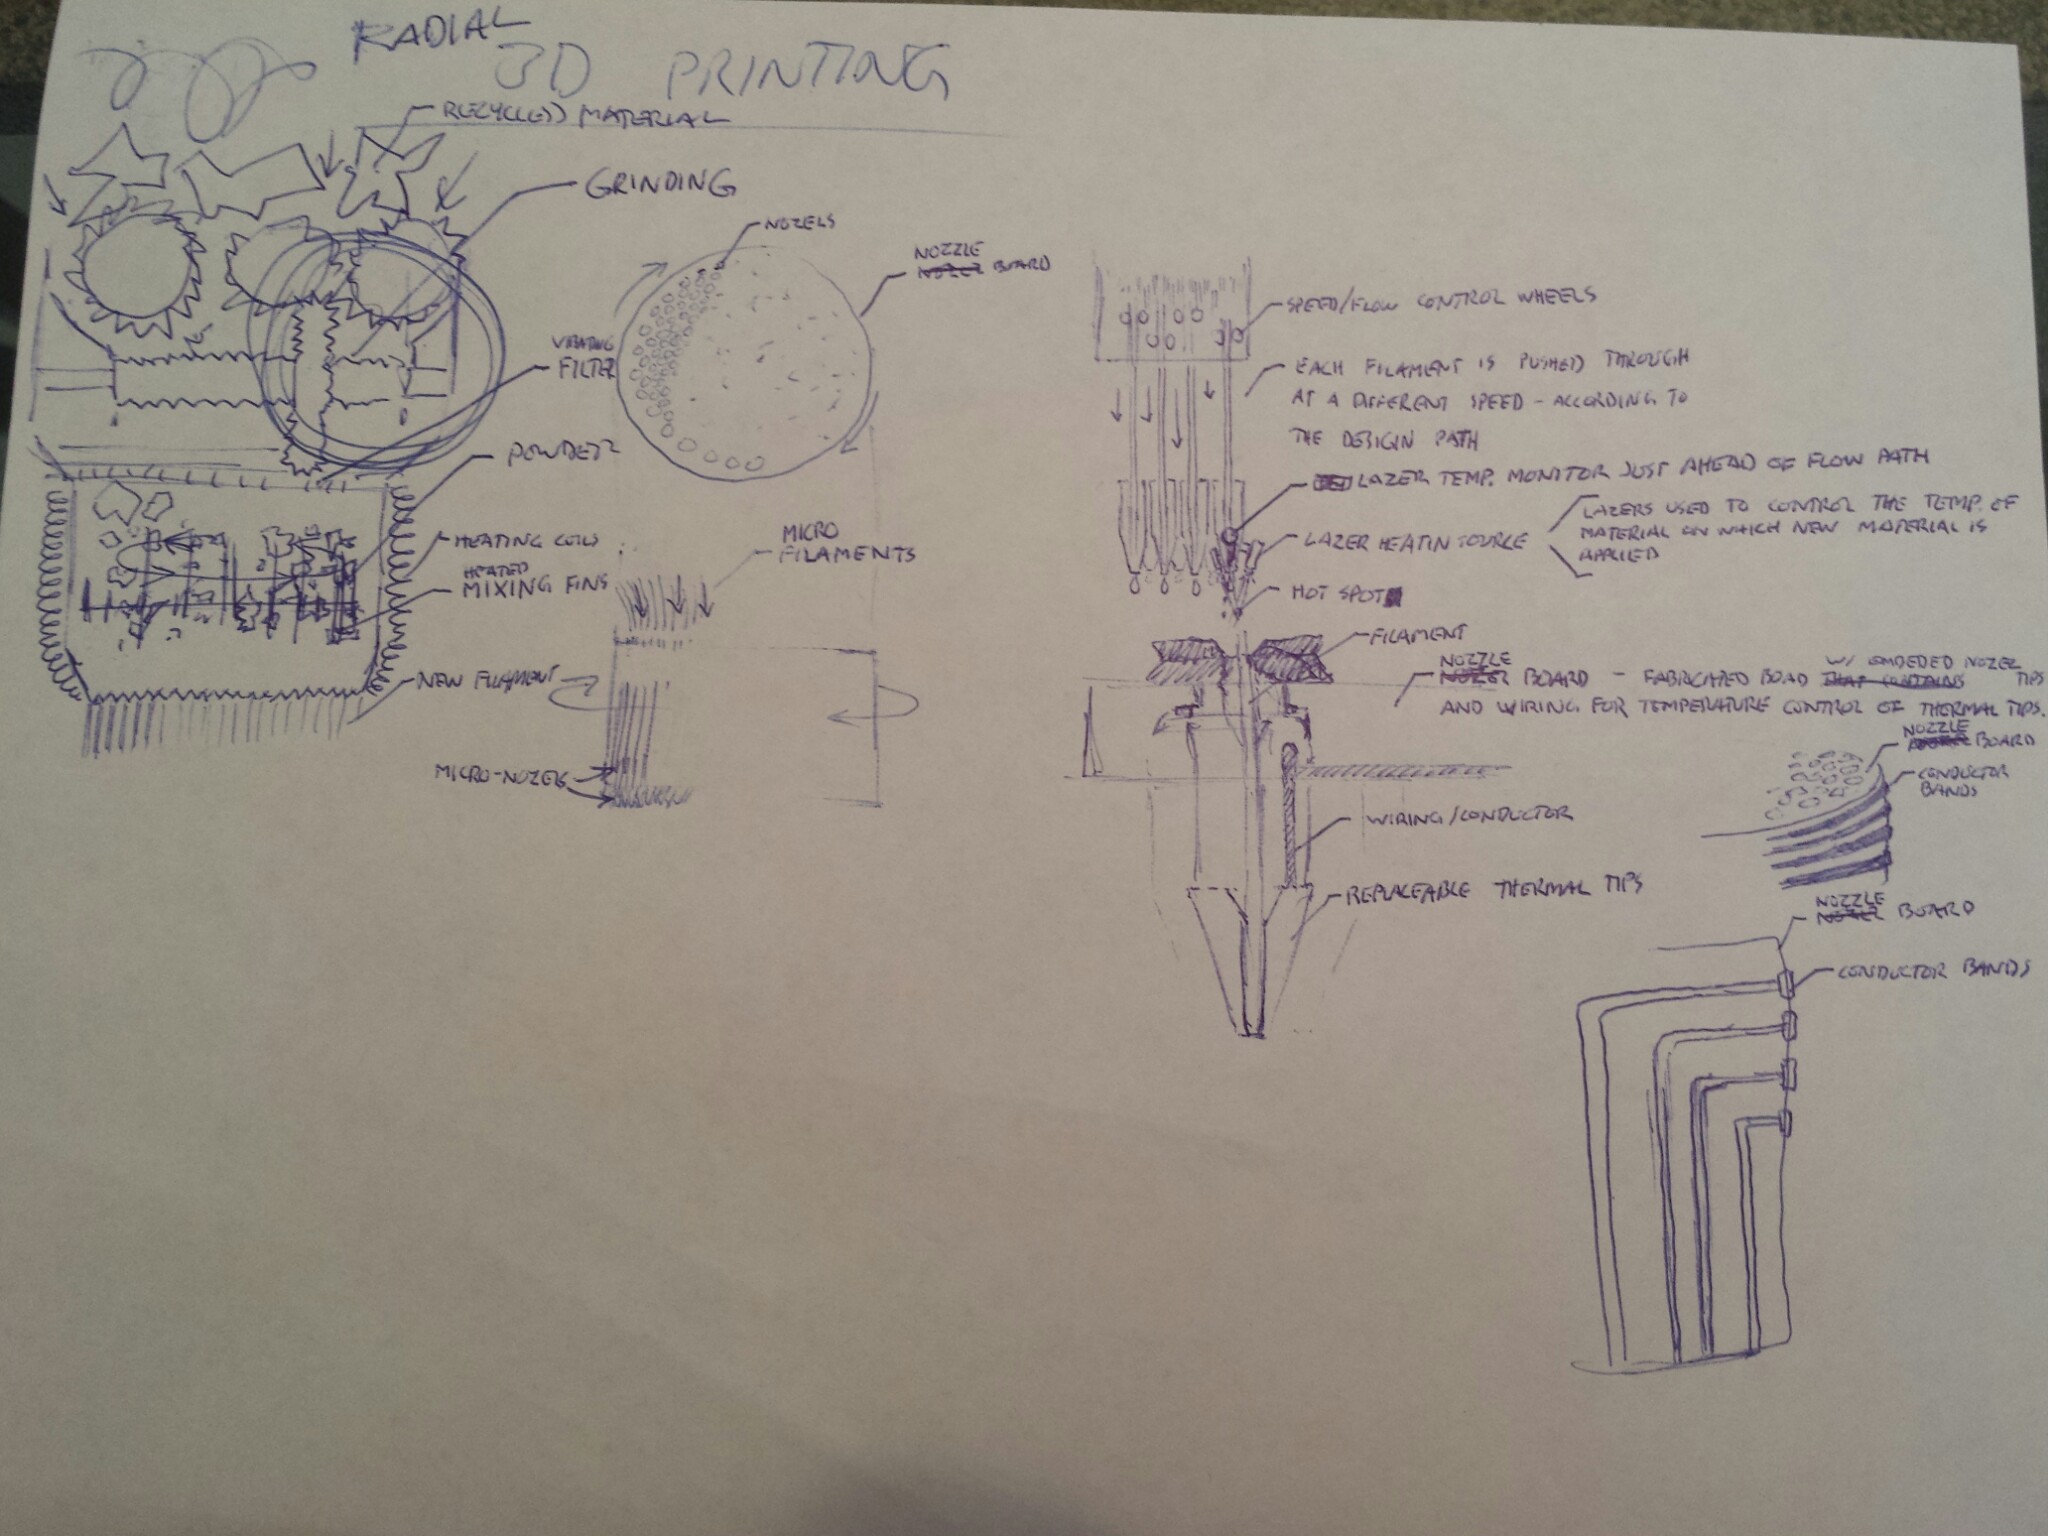 RADIAL
3D PRINTING
RECYCLED MATERIAL
GRINDING
NOZELS
NOZZLE
BOARD
VIBRATING
FILTER
POWDER
HEATING COILS
HEATED
MIXING FINS
NEW FILAMENT
MICRO
FILAMENTS
MICRO-NOZELS
SPEED/FLOW CONTROL WHEELS
EACH FILAMENT IS PUSHED THROUGH
AT A DIFFERENT SPEED - ACCORDING TO
THE DESIGN PATH
LAZER TEMP. MONITOR JUST AHEAD OF FLOW PATH
LAZER HEATIN SOURCE
LAZERS USED TO CONTROL THE TEMP. OF
MATERIAL ON WHICH NEW MATERIAL IS
APPLIED
HOT SPOT
FILAMENT
NOZZLE
NOZEL BOARD - FABRICATED BOAD THAT CONTAINS W/ EMBEDED NOZEL TIPS
AND WIRING FOR TEMPERATURE CONTROL OF THERMAL TIPS.
NOZZLE
BOARD
CONDUCTOR
BANDS
WIRING/CONDUCTOR
REPLACEABLE THERMAL TIPS
NOZZLE
NOZEL BOARD
CONDUCTOR BANDS